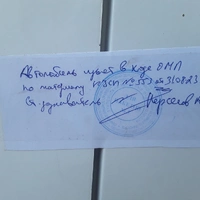 Автомобиль изъят в ходе ОМП
по материалу КУСП № 353 от 31.08.23
Ст. дознаватель